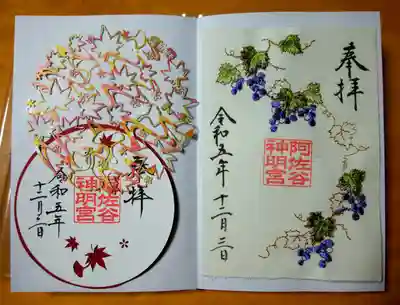 奉拝
阿佐谷
神明宮
令和五年 十二月三日
奉拝
阿佐谷
神明宮
令和五年
十二月三日